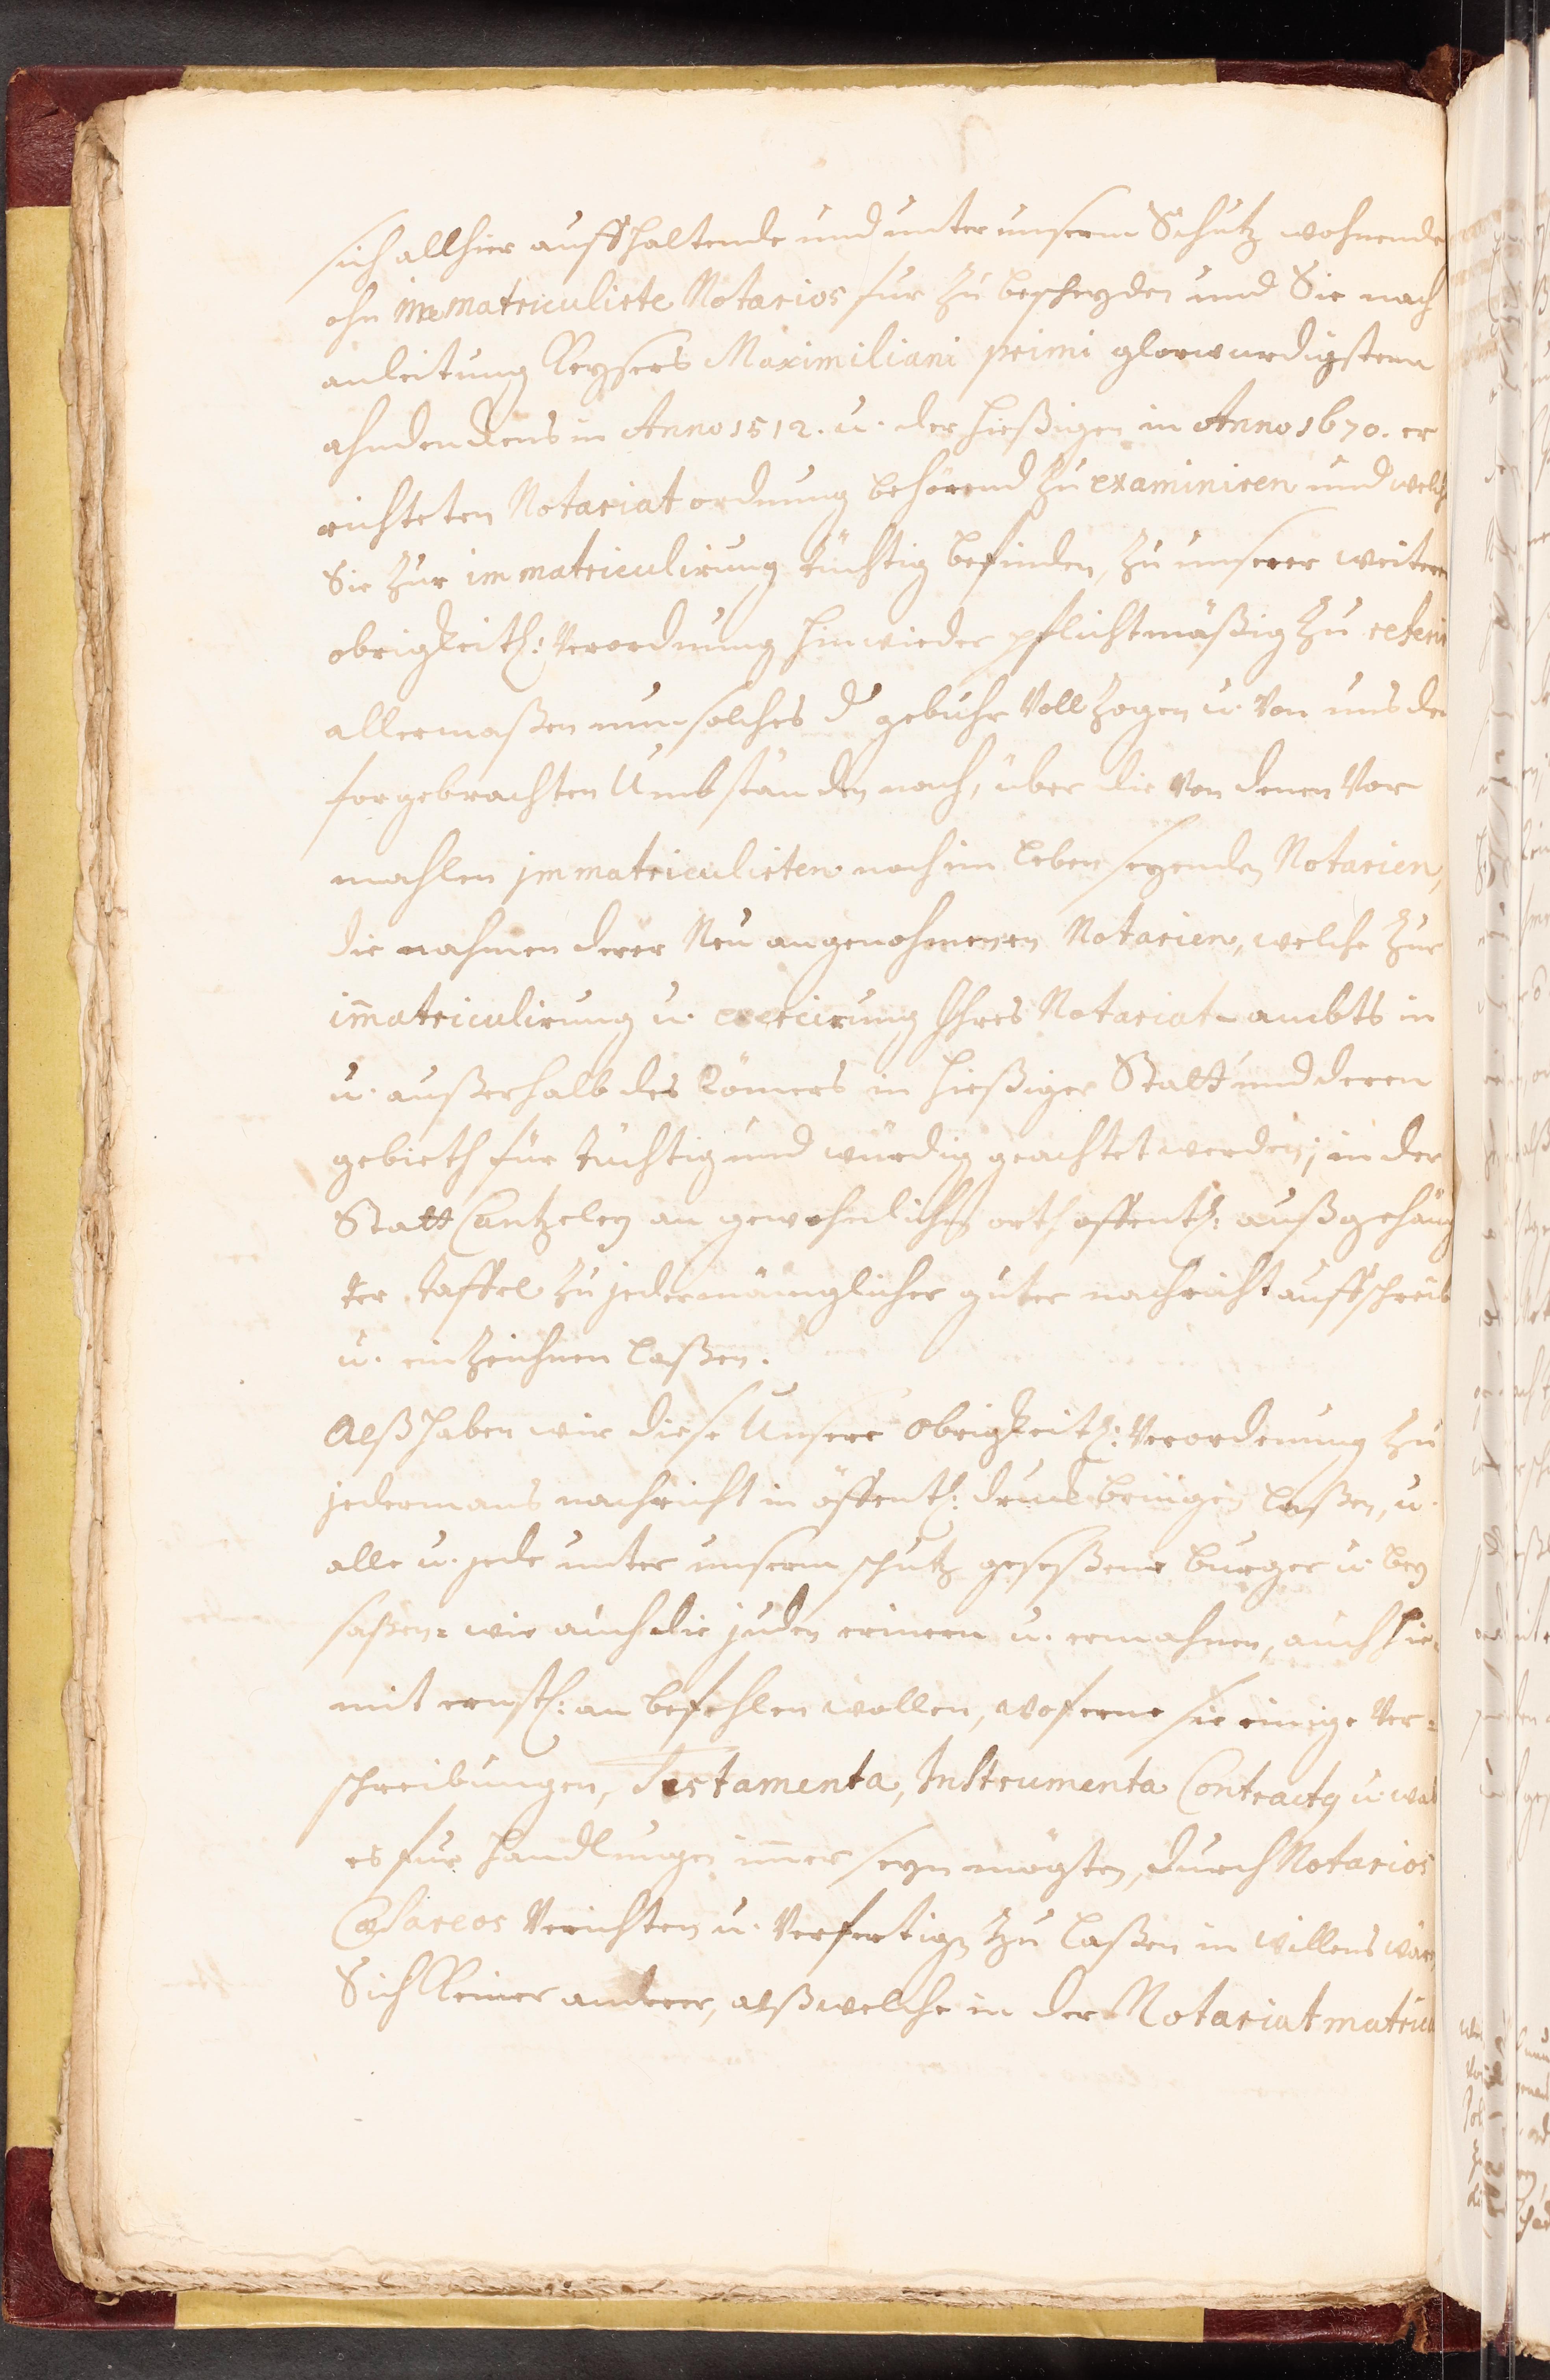 sich allhier auffhaltende und unter unserm Schutz wohnende
ohn immatriculirte Notarios fur zu bescheyden und Sie nach
anleitung Keysers Maximiliani primi glorwurdigstem
ahndenckens in Anno 1512. u. der hießigen in Anno 1670. er
richteten Notariat ordnung behörend zu examiniren und welche
Sie zur immatriculirung tüchtig befinden, zu unserer weitern
obrigkeitl: Verordnung hinwieder pflichtmäßig zu referir
allermaßen nun solches d gebuhr Voll zogen u. Von uns den
forgebrachten Umbständen nach, über die Von denen Vor
mahlen jmmatriculirten noch im leben seyenden Notarien,
die nahmen derer Neu angenohmenen Notarien, welche zur
im̄atriculirung u. exercirung Ihres Notariat-ambts in
u. außerhalb des Römers in hießiger Statt und deren
gebieth für tüchtig und würdig geachtet werden; in der
Statt Cantzeley an gewohnlichen orth offentl: außgehäng
ter taffel zu jedermänniglicher guter nachricht auffschreib
u. ein zeichnen laßen.
Alß haben wir diese Unsere Obrigkeitl: Verordnung zu
jedermans nachricht in öffentl: druck bringen laßen, u.
alle u. jede unter unserm schutz geseßene burger u. bey
saßen= wie auch die juden erinern u. ermahnen, auch hie-
mit ernstl: an befehlen wollen, woferne sie einige Ver=
schreibungen, Testamenta, Instrumenta Contractq u. was
es fur handlungen im̄er seyn mögten, durch Notarios
Cæsareos Verichten u. Verfertigen zu laßen in willens wären
Sich Keiner anderer, alß welche in der Notariat matricul